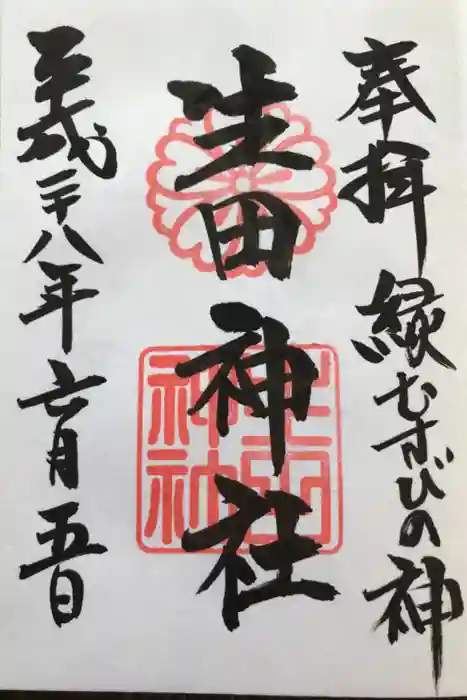 奉拝 縁むすびの神
生田神社
生田神社
平成二十八年六月五日